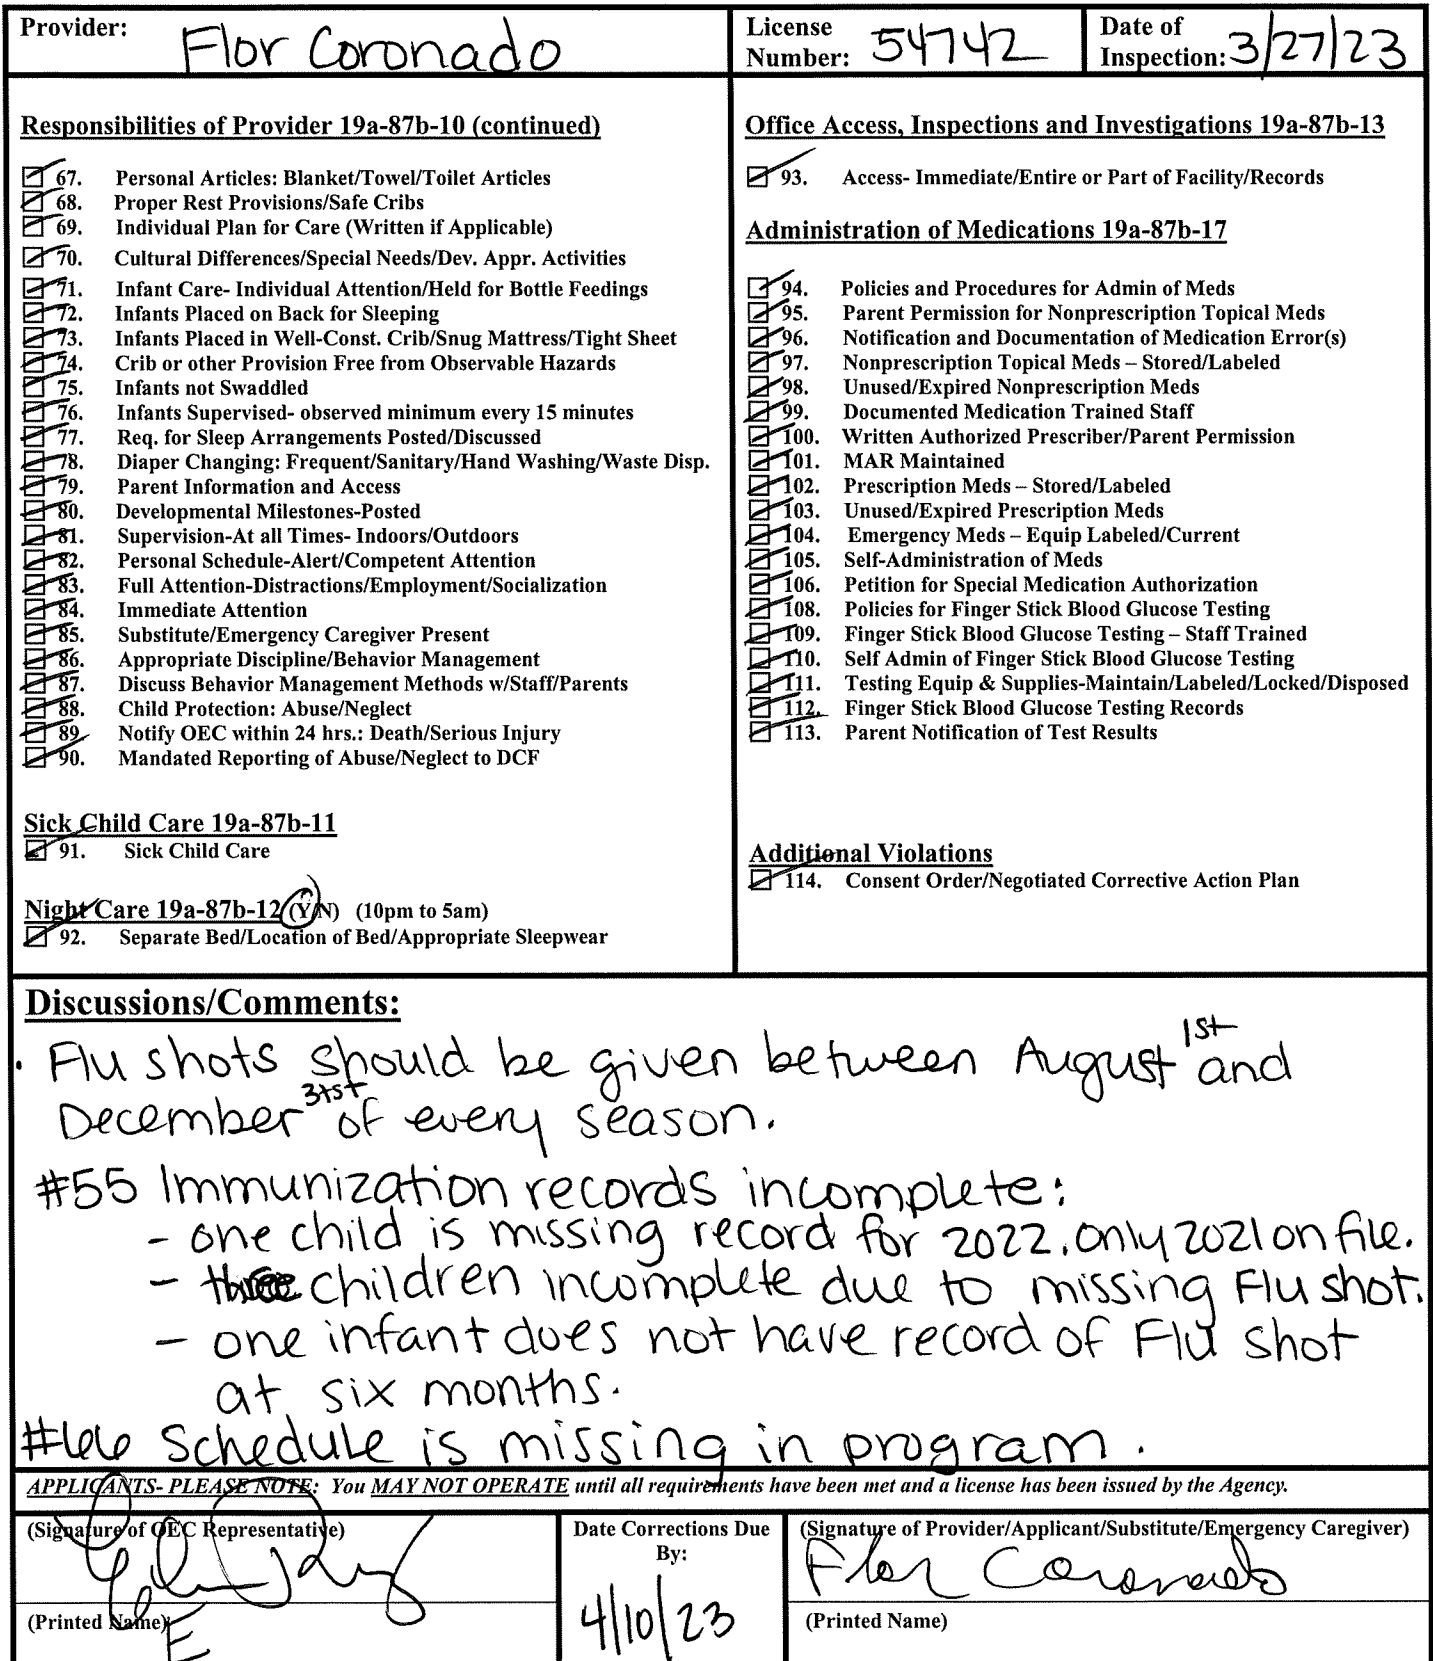 Provider: Flor Coronado
License Number: 54742
Date of Inspection: 3/27/23
Responsibilities of Provider 19a-87b-10 (continued)
67. Personal Articles: Blanket/Towel/Toilet Articles
68. Proper Rest Provisions/Safe Cribs
69. Individual Plan for Care (Written if Applicable)
70. Cultural Differences/Special Needs/Dev. Appr. Activities
71. Infant Care- Individual Attention/Held for Bottle Feedings
72. Infants Placed on Back for Sleeping
73. Infants Placed in Well-Const. Crib/Snug Mattress/Tight Sheet
74. Crib or other Provision Free from Observable Hazards
75. Infants not Swaddled
76. Infants Supervised- observed minimum every 15 minutes
77. Req. for Sleep Arrangements Posted/Discussed
78. Diaper Changing: Frequent/Sanitary/Hand Washing/Waste Disp.
79. Parent Information and Access
80. Developmental Milestones-Posted
81. Supervision-At all Times- Indoors/Outdoors
82. Personal Schedule-Alert/Competent Attention
83. Full Attention-Distractions/Employment/Socialization
84. Immediate Attention
85. Substitute/Emergency Caregiver Present
86. Appropriate Discipline/Behavior Management
87. Discuss Behavior Management Methods w/Staff/Parents
88. Child Protection: Abuse/Neglect
89. Notify OEC within 24 hrs.: Death/Serious Injury
90. Mandated Reporting of Abuse/Neglect to DCF
Sick Child Care 19a-87b-11
91. Sick Child Care
Night Care 19a-87b-12 (Y/N) (10pm to 5am)
92. Separate Bed/Location of Bed/Appropriate Sleepwear
Office Access, Inspections and Investigations 19a-87b-13
93. Access- Immediate/Entire or Part of Facility/Records
Administration of Medications 19a-87b-17
94. Policies and Procedures for Admin of Meds
95. Parent Permission for Nonprescription Topical Meds
96. Notification and Documentation of Medication Error(s)
97. Nonprescription Topical Meds – Stored/Labeled
98. Unused/Expired Nonprescription Meds
99. Documented Medication Trained Staff
100. Written Authorized Prescriber/Parent Permission
101. MAR Maintained
102. Prescription Meds – Stored/Labeled
103. Unused/Expired Prescription Meds
104. Emergency Meds – Equip Labeled/Current
105. Self-Administration of Meds
106. Petition for Special Medication Authorization
108. Policies for Finger Stick Blood Glucose Testing
109. Finger Stick Blood Glucose Testing – Staff Trained
110. Self Admin of Finger Stick Blood Glucose Testing
111. Testing Equip & Supplies-Maintain/Labeled/Locked/Disposed
112. Finger Stick Blood Glucose Testing Records
113. Parent Notification of Test Results
Additional Violations
114. Consent Order/Negotiated Corrective Action Plan
Discussions/Comments:
· Flu shots should be given between August 1st and
December 31st of every season.
#55 Immunization records incomplete:
- one child is missing record for 2022. only 2021 on file.
- three children incomplete due to missing Flu shot.
- one infant does not have record of Flu shot
at six months.
#66 Schedule is missing in program.
APPLICANTS- PLEASE NOTE: You MAY NOT OPERATE until all requirements have been met and a license has been issued by the Agency.
(Signature of OEC Representative)
(Printed Name)
Date Corrections Due
By:
4/10/23
(Signature of Provider/Applicant/Substitute/Emergency Caregiver)
Flor Coronado
(Printed Name)